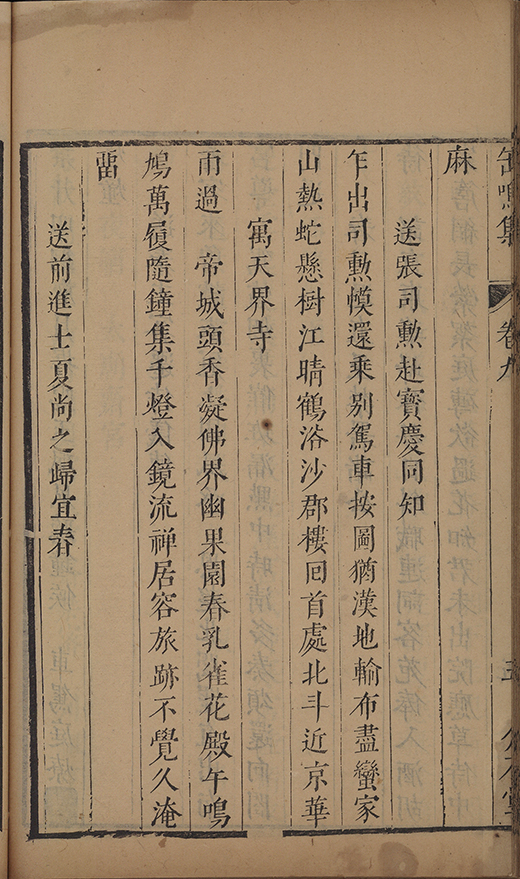 缶鳴集 卷九
麻
送張司勲赴寶慶同知
乍出司勲幙還乘别駕車按圖猶漢地輸布盡蠻家
山熱蛇懸樹江晴鶴浴沙郡樓回首處北斗近京華
寓天界寺
雨過帝城頭香凝佛界幽果園春乳雀花殿午鳴
鳩萬履隨鐘集千燈入鏡流禅居容旅跡不覺久淹
畱
送前進士夏尚之歸宜春